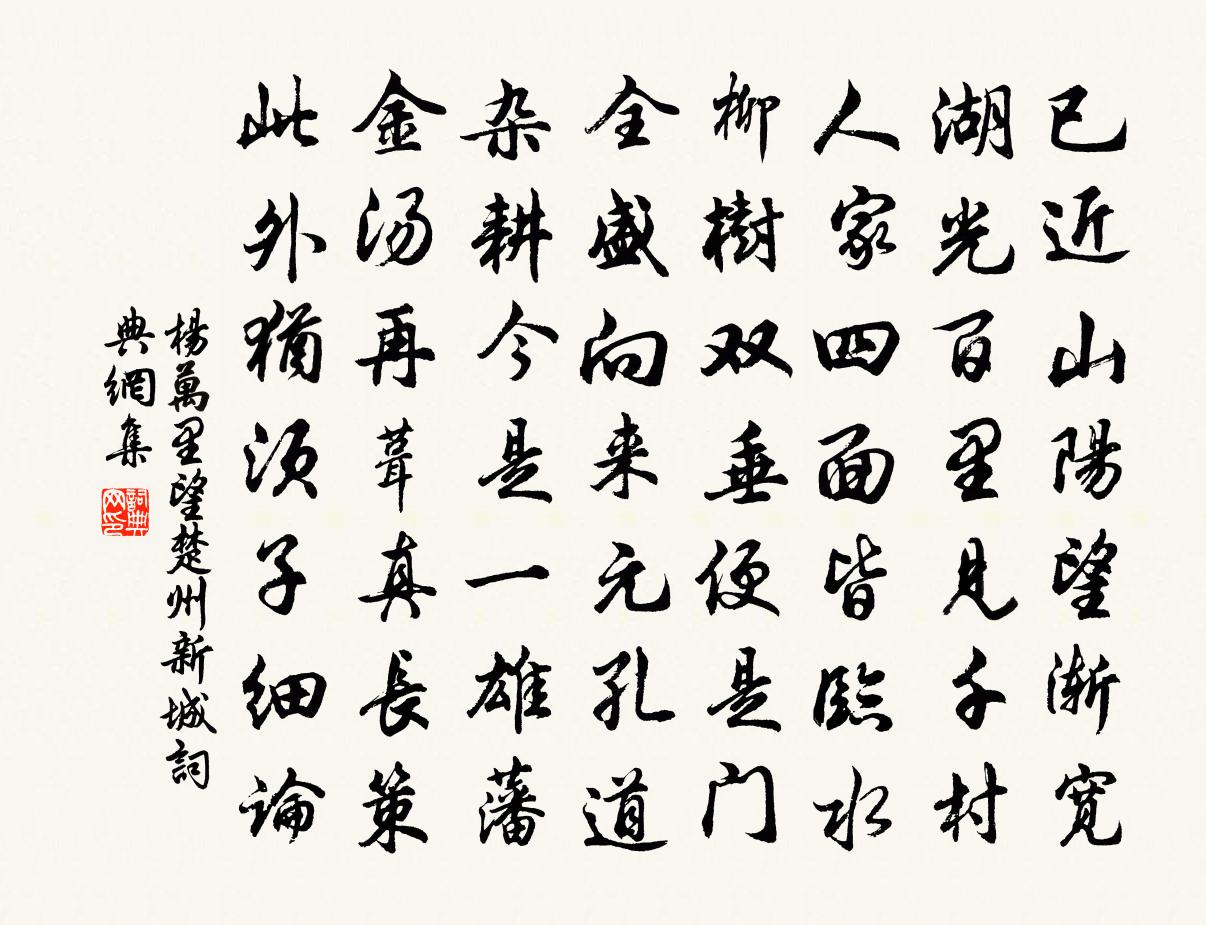 已近山陽望漸寛
湖光百里見千村
人家四面皆臨水
柳樹双垂便是门
全盛向来元孔道
杂耕今是一雄藩
金汤再葺真長策
此外猶须子细論
楊萬里望楚州新城詞
典網集
詞典
网印